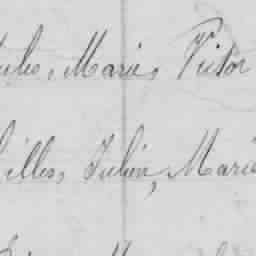 Jules, Marie, Victor
Gilles, Julien, Marie